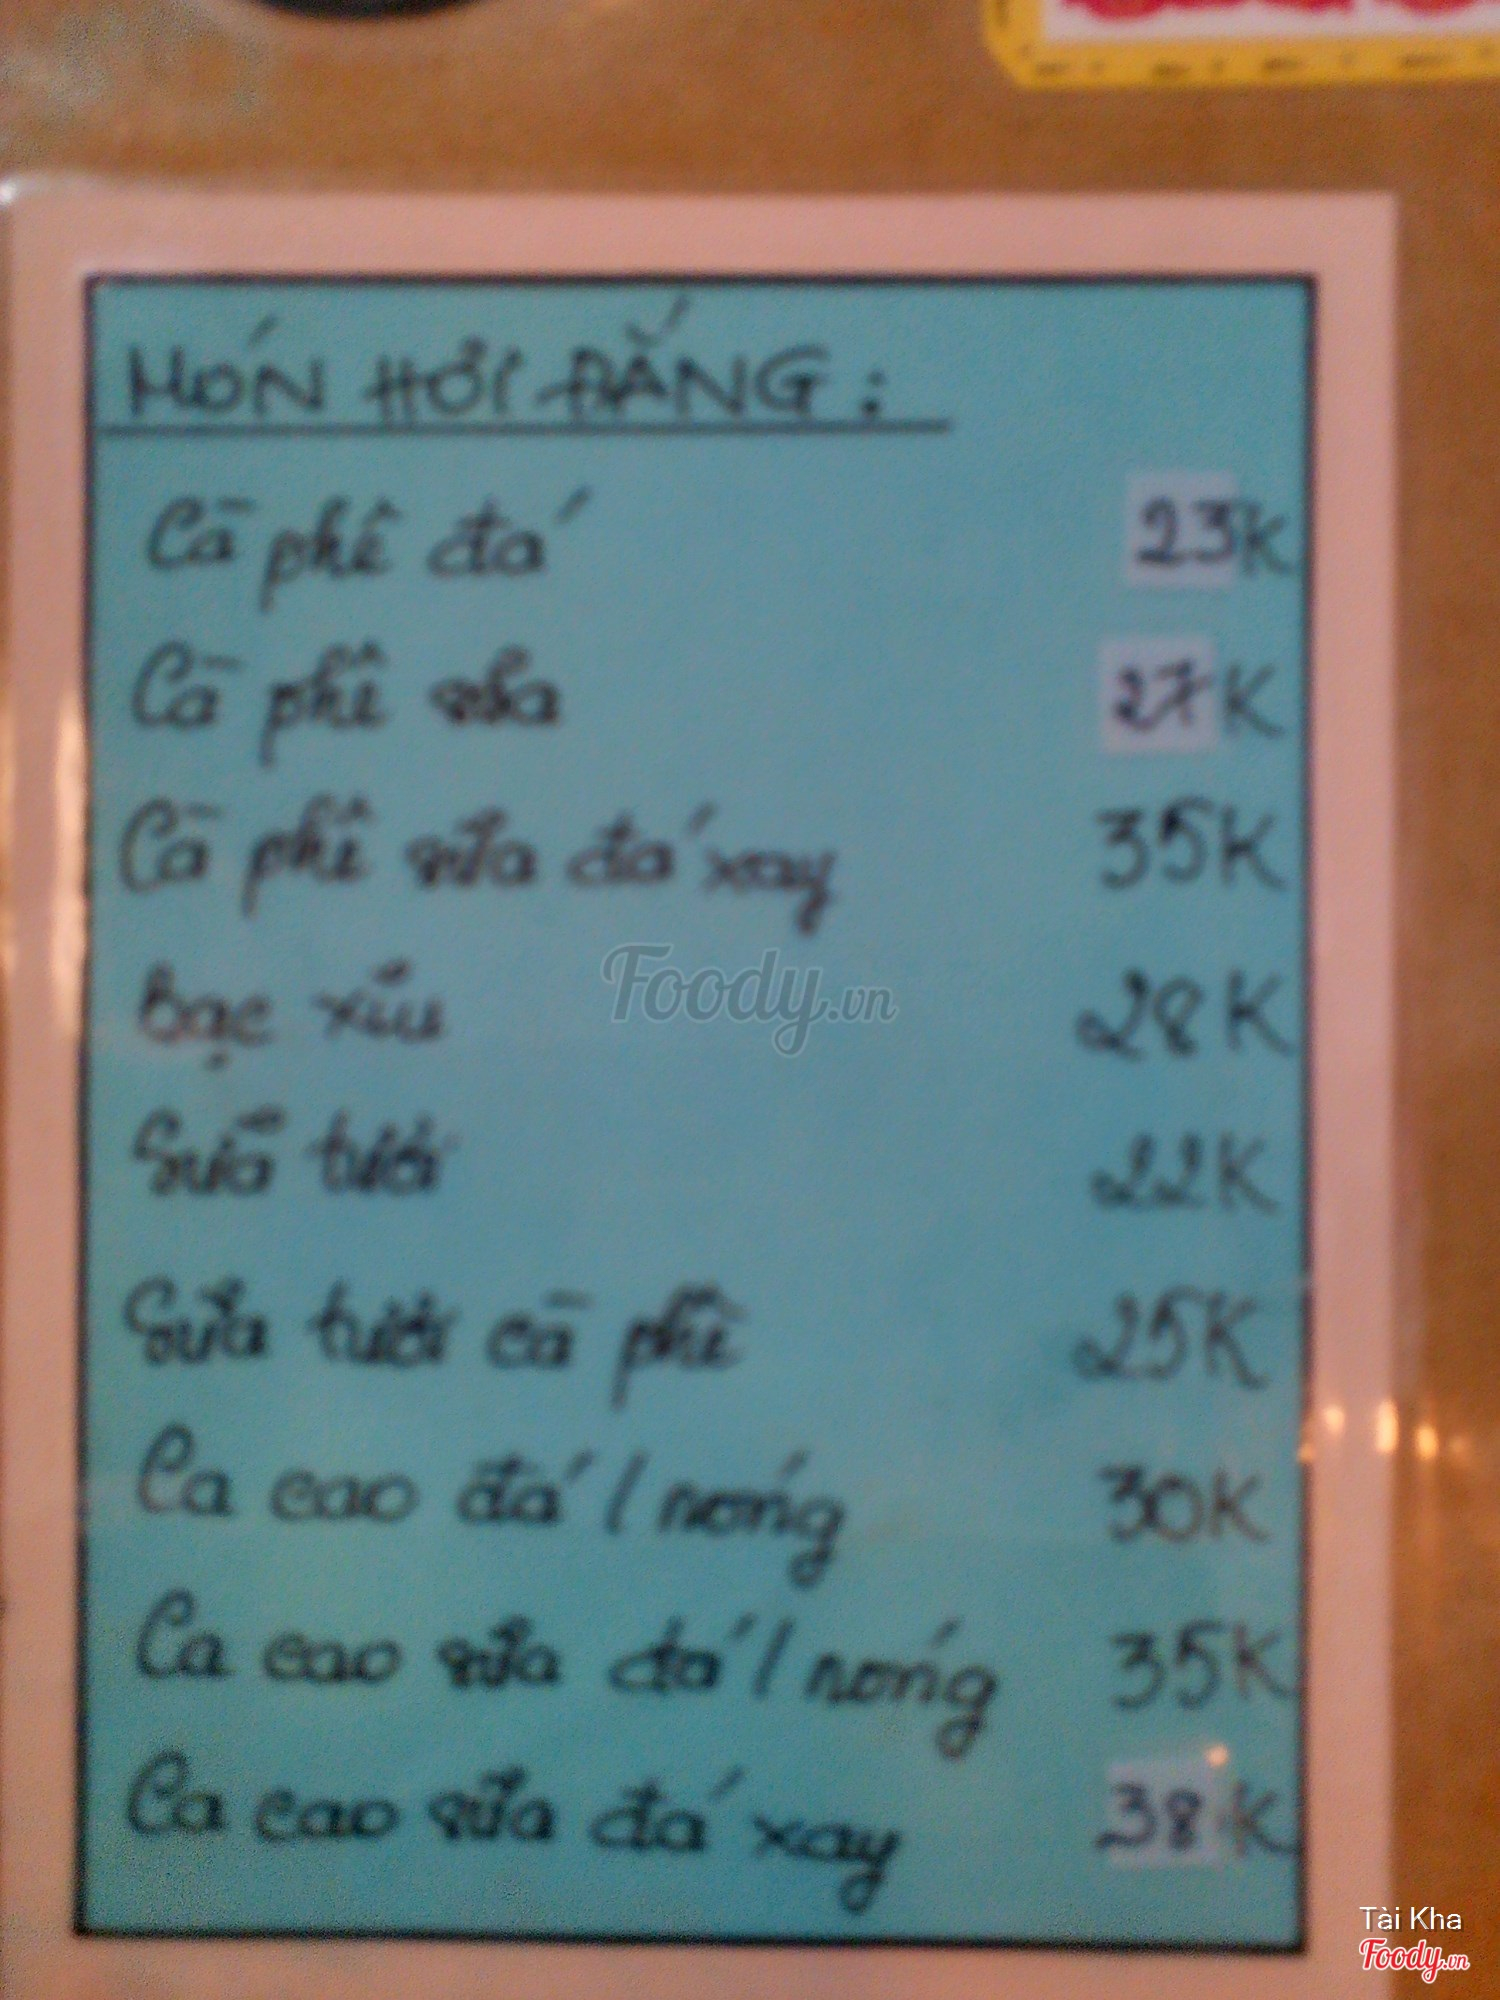 MÓN HƠI ĐẮNG:
Cà phê đá 23K
Cà phê sữa 27K
Cà phê sữa đá xay 35K
Bạc xỉu 28K
Sữa tươi 22K
Sữa tươi cà phê 25K
Ca cao đá / nóng 30K
Ca cao sữa đá / nóng 35K
Ca cao sữa đá xay 38K
Foody.vn
Tài Kha
Foody.vn